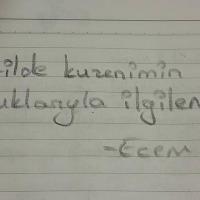 ilde kuzenimin
uklarıyla ilgilen
-Ecem